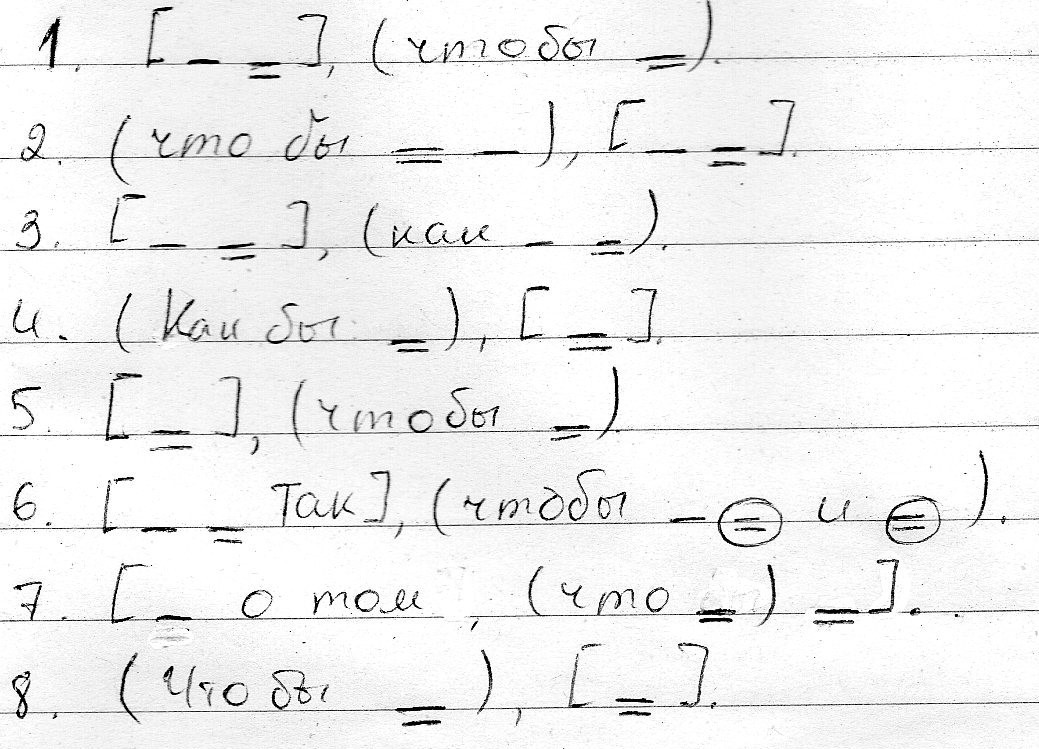 1. [ — = ], (чтобы = ).
2. (что бы = — ), [ — = ].
3. [ — = ], (как — = ).
4. (Как бы = ), [ = ].
5. [ = ], (чтобы = ).
6. [ — = Так], (чтобы — = и = ).
7. [ — о том , (что = ) = ]. .
8. (Что бы = ), [ = ].